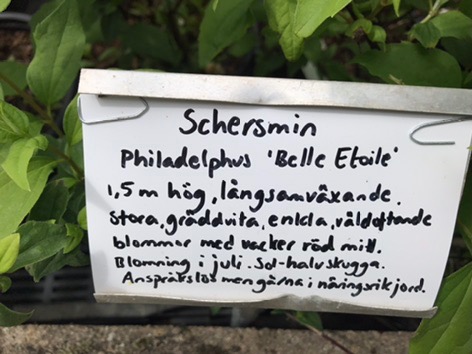 Schersmin
Philadelphus 'Belle Etoile'
1,5 m hög, långsamväxande.
Stora, gräddvita, enkla, väldoftande
blommor med vacker röd mitt.
Blomning i juli. Sol-halvskugga.
Anspråkslös men gärna i näringsrik jord.